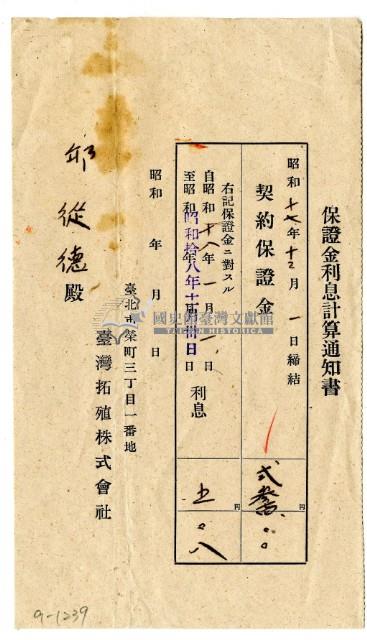 保證金利息計算通知書
昭和十七年十二月一日締結
契約保證金
右記保證金ニ對スル
自昭和十八年一月一日
至昭和 年 月 日
昭和拾八年十二月卅一日
利息
円
五〇八
昭和 年 月 日
臺北市榮町三丁目一番地
臺灣拓殖株式會社
邱從德殿
國史館臺灣文獻館
TAIWAN HISTORICA
9-1239